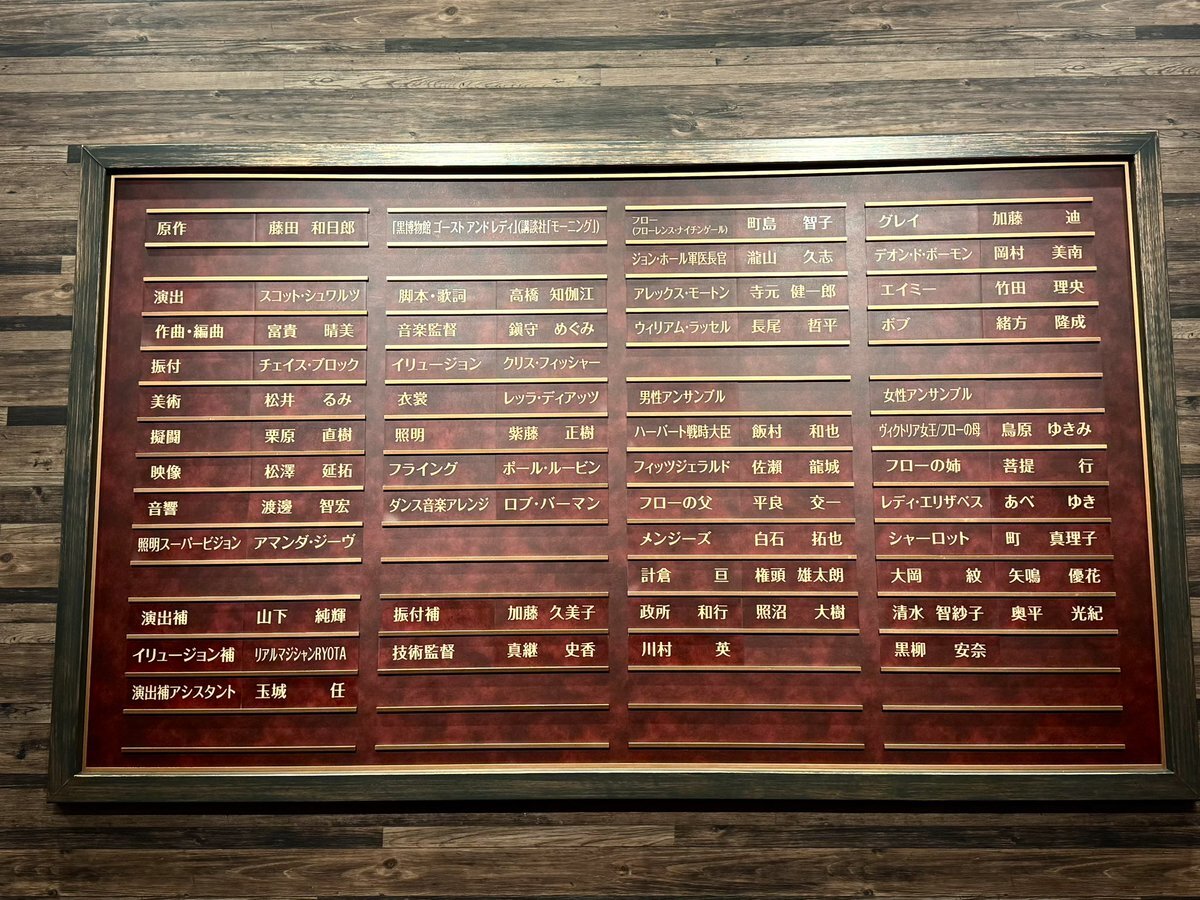 原作 藤田 和日郎
演出 スコット・シュワルツ
作曲・編曲 富貴 晴美
振付 チェイス・ブロック
美術 松井 るみ
擬闘 栗原 直樹
映像 松澤 延拓
音響 渡邊 智宏
照明スーパービジョン アマンダ・ジーヴ
演出補 山下 純輝
イリュージョン補 リアルマジシャンRYOTA
演出補アシスタント 玉城 任
「黒博物館 ゴースト アンド レディ」(講談社「モーニング」)
脚本・歌詞 高橋 知伽江
音楽監督 鎮守 めぐみ
イリュージョン クリス・フィッシャー
衣裳 レッラ・ディアッツ
照明 紫藤 正樹
フライング ポール・ルービン
ダンス音楽アレンジ ロブ・バーマン
振付補 加藤 久美子
技術監督 真継 史香
フロー
(フローレンス・ナイチンゲール) 町島 智子
ジョン・ホール軍医長官 瀧山 久志
アレックス・モートン 寺元 健一郎
ウィリアム・ラッセル 長尾 哲平
男性アンサンブル
ハーバート戦時大臣 飯村 和也
フィッツジェラルド 佐瀬 龍城
フローの父 平良 交一
メンジーズ 白石 拓也
計倉 亘 権頭 雄太朗
政所 和行 照沼 大樹
川村 英
グレイ 加藤 迪
デオン・ド・ボーモン 岡村 美南
エイミー 竹田 理央
ボブ 緒方 隆成
女性アンサンブル
ヴィクトリア女王/フローの母 鳥原 ゆきみ
フローの姉 菩提 行
レディ・エリザベス あべ ゆき
シャーロット 町 真理子
大岡 紋 矢鳴 優花
清水 智紗子 奥平 光紀
黒柳 安奈